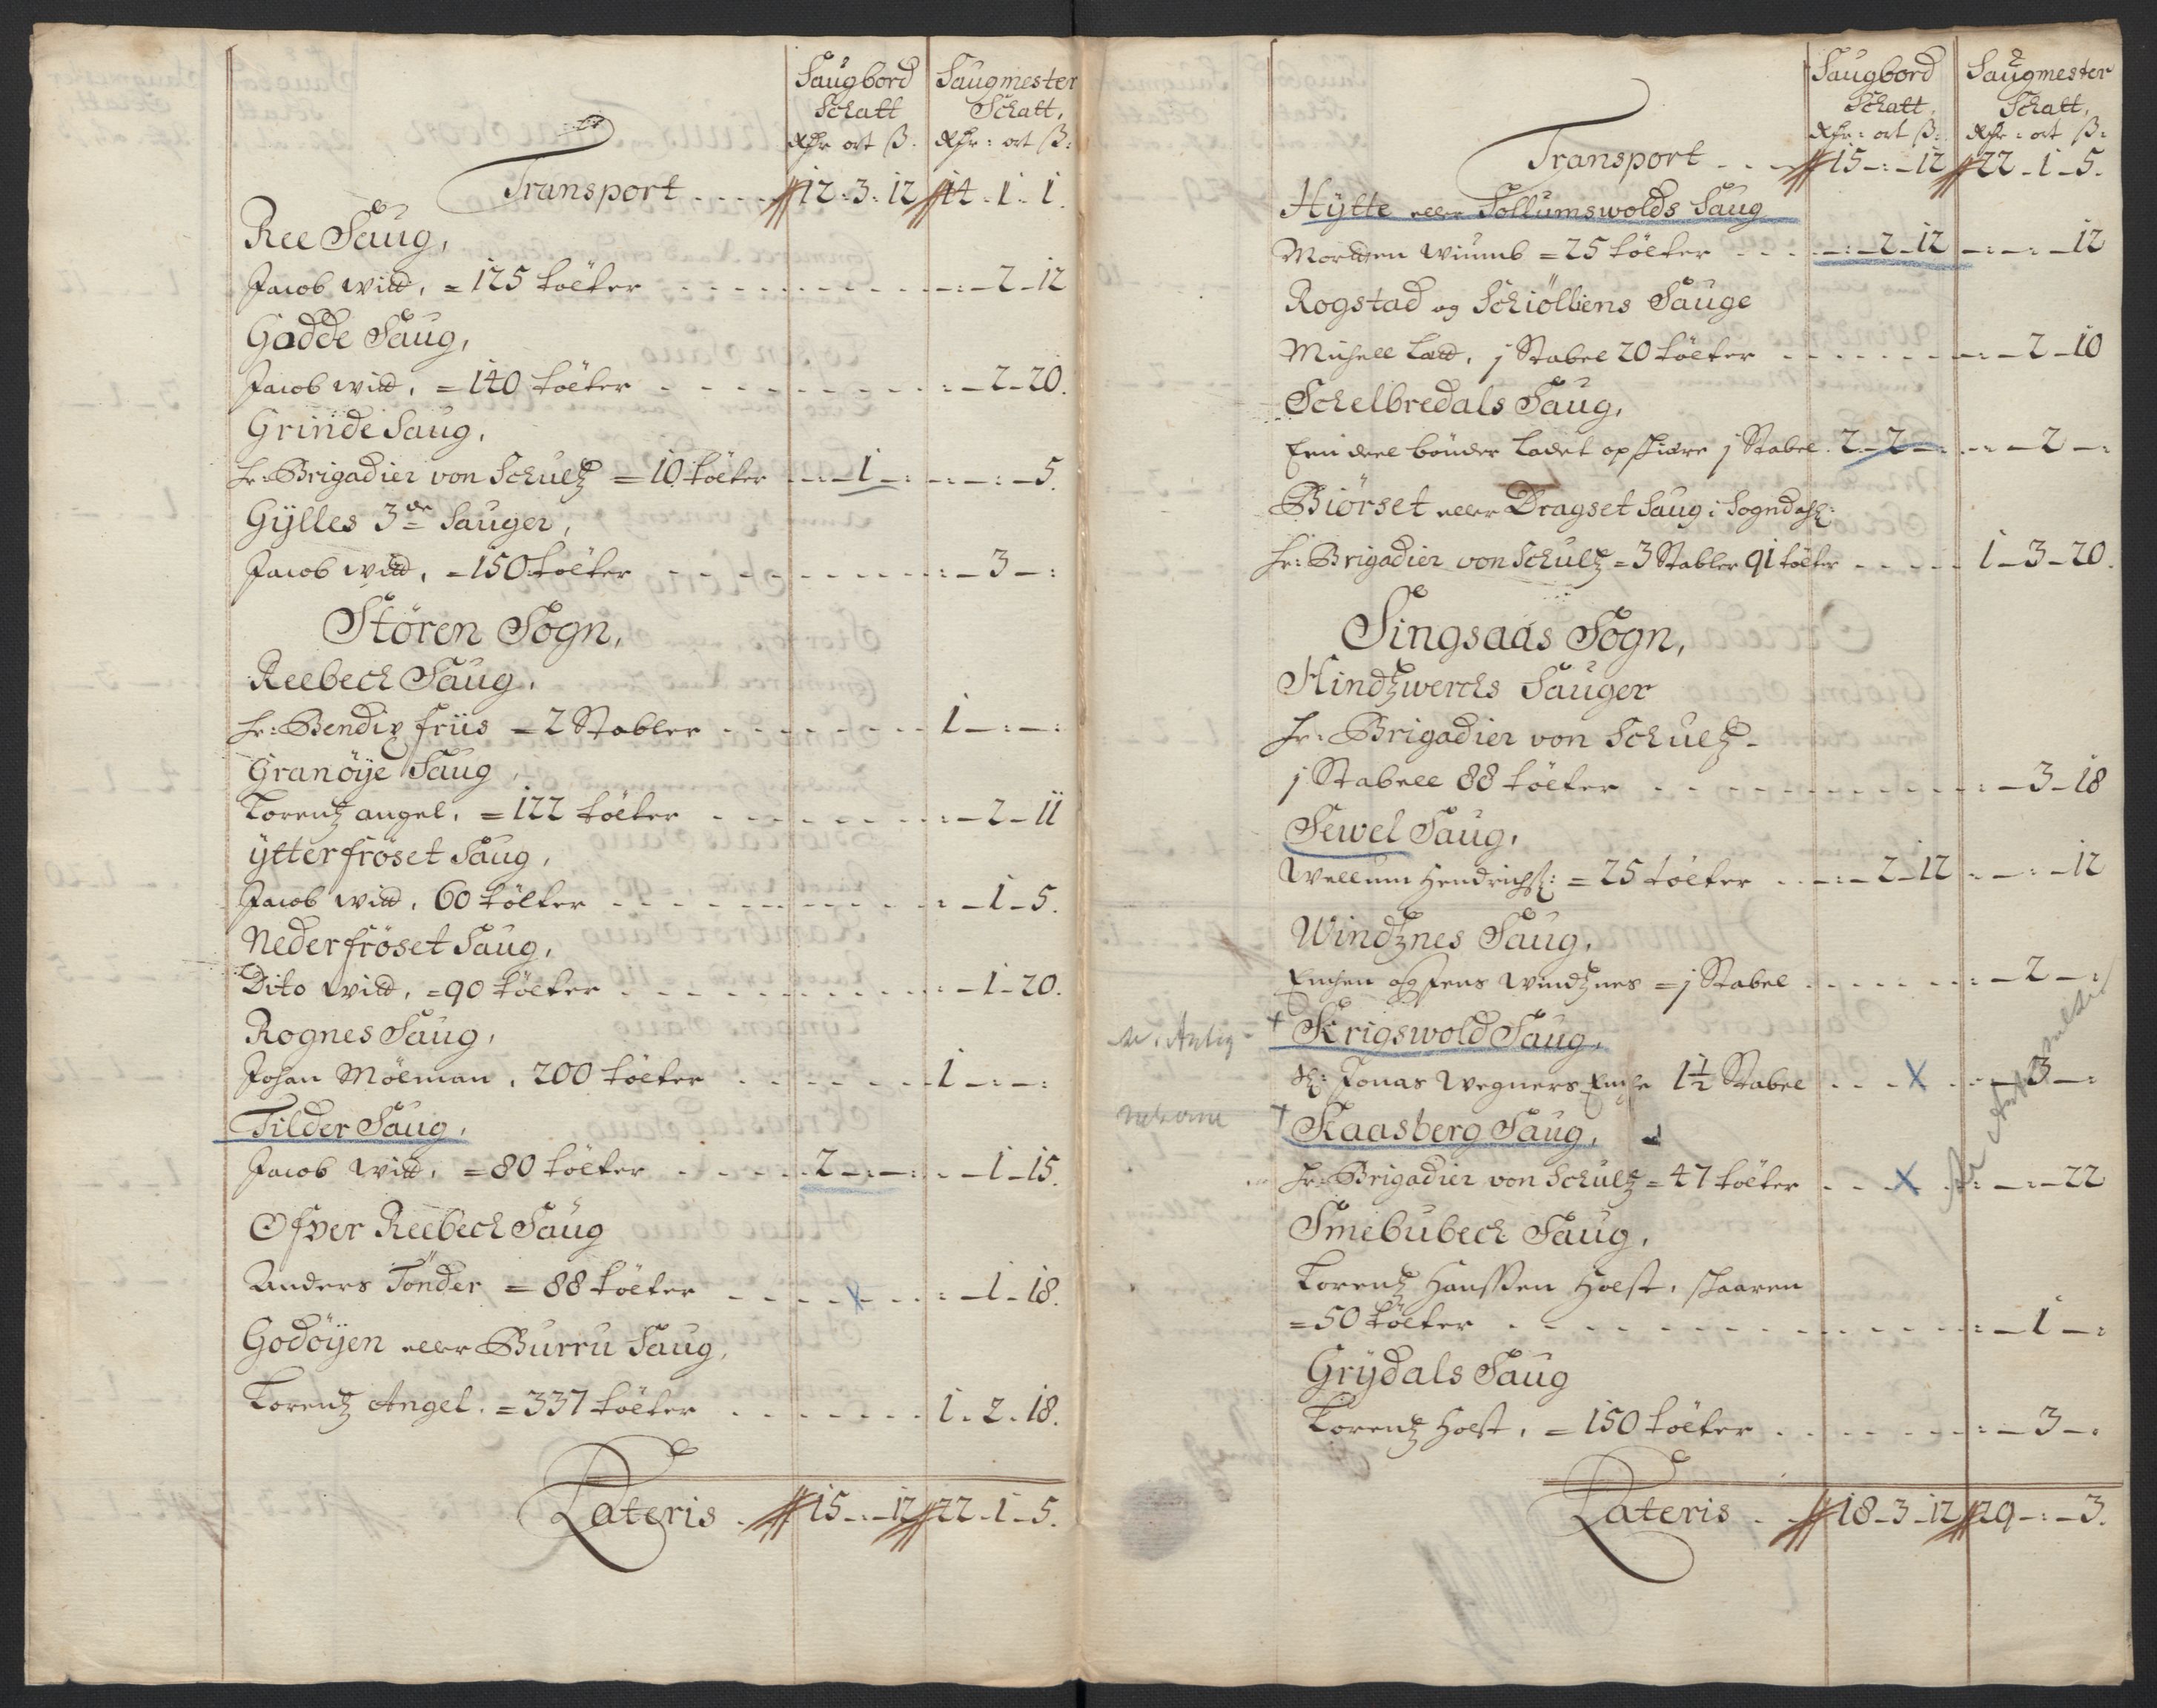 Saugbord Saugmester
Schatt Schatt,
Rdr ort ß. Rdr: ort ß:
Transport .... 12-3-12 14-1-1.
Ree Saug,
Jacob Widd, = 125 tölter -:-2-12
Gadde Saug,
Jacob Widd, = 140 tölter :-2-20.
Grinde Saug,
Hr: Brigadier von Schultz = 10 tölter -:-1-: -:-:-5.
Gÿlles 3de Sauger,
Jacob Widd, = 150 tölter :-3-:
Stören Sogn,
Reebech Saug,
Hr: Bendix Friis = 2 Stabler 1-:-:
Granöÿe Saug,
Lorentz Angel, = 122 tölter :-2-11
Ÿtterfröset Saug,
Jacob Widd, 60 tölter :-1-5.
Nederfröset Saug,
Dito Widd, = 90 tölter :-1-20.
Rognes Saug,
Johan Mölman, 200 tölter 1-:-:
Tilder Saug,
Jacob Widd, = 80 tölter 2-:-: :-1-15.
Ofver Reebech Saug
Anders Tönder = 88 tölter x :-1-18.
Godöÿen eller Burru Saug,
Lorentz Angel. = 337 tölter 1-2-18.
Lateris 15-:-12 22-1-5.
Saugbord Saugmester
Schatt, Schatt,
Rdr: ort ß: Rdr: ort ß:
Transport 15-:-12 22-1-5.
Hÿtte eller Sollumswolds Saug
Mordten Wiumb = 25 tölter -:-2-12 -:-:-12
Rogstad og Schiölliens Sauge
Michell Ladd, j Stabel 20 tölter -:-2-10
Schelbredals Saug,
Een deel bönder ladet opskiære j Stabel. 2-2-: -:-2-:
Biörset eller Dragset Saug i Sogndahl:
Hr: Brigadier von Schultz = 3 Stabler 91 tölter 1-3-20.
Singsaas Sogn,
Hindtzwerchs Sauger
Hr: Brigadier von Schultz-
j Stabell 88 tölter :-3-18
Sewel Saug,
Wellum Hendrichs: = 25 tölter -:-2-12 :-:-12
Windtznes Saug,
Enchen og Jens Windtznes = j Stabel :-2-:
+ Krigswold Saug,
Sl: Jonas Wegners Enche 1½ Stabel x :-3-:
+ Kaasberg Saug,
Hr: Brigadier von Schultz = 47 tölter x :-:-22
Smebubech Saug,
Lorentz Hanssen Holst, skaaren
= 50 tölter :-1-:
Grÿdals Saug
Lorentz Holst, = 150 tölter :-3-:
Lateris 18-3-12 29-:-3.